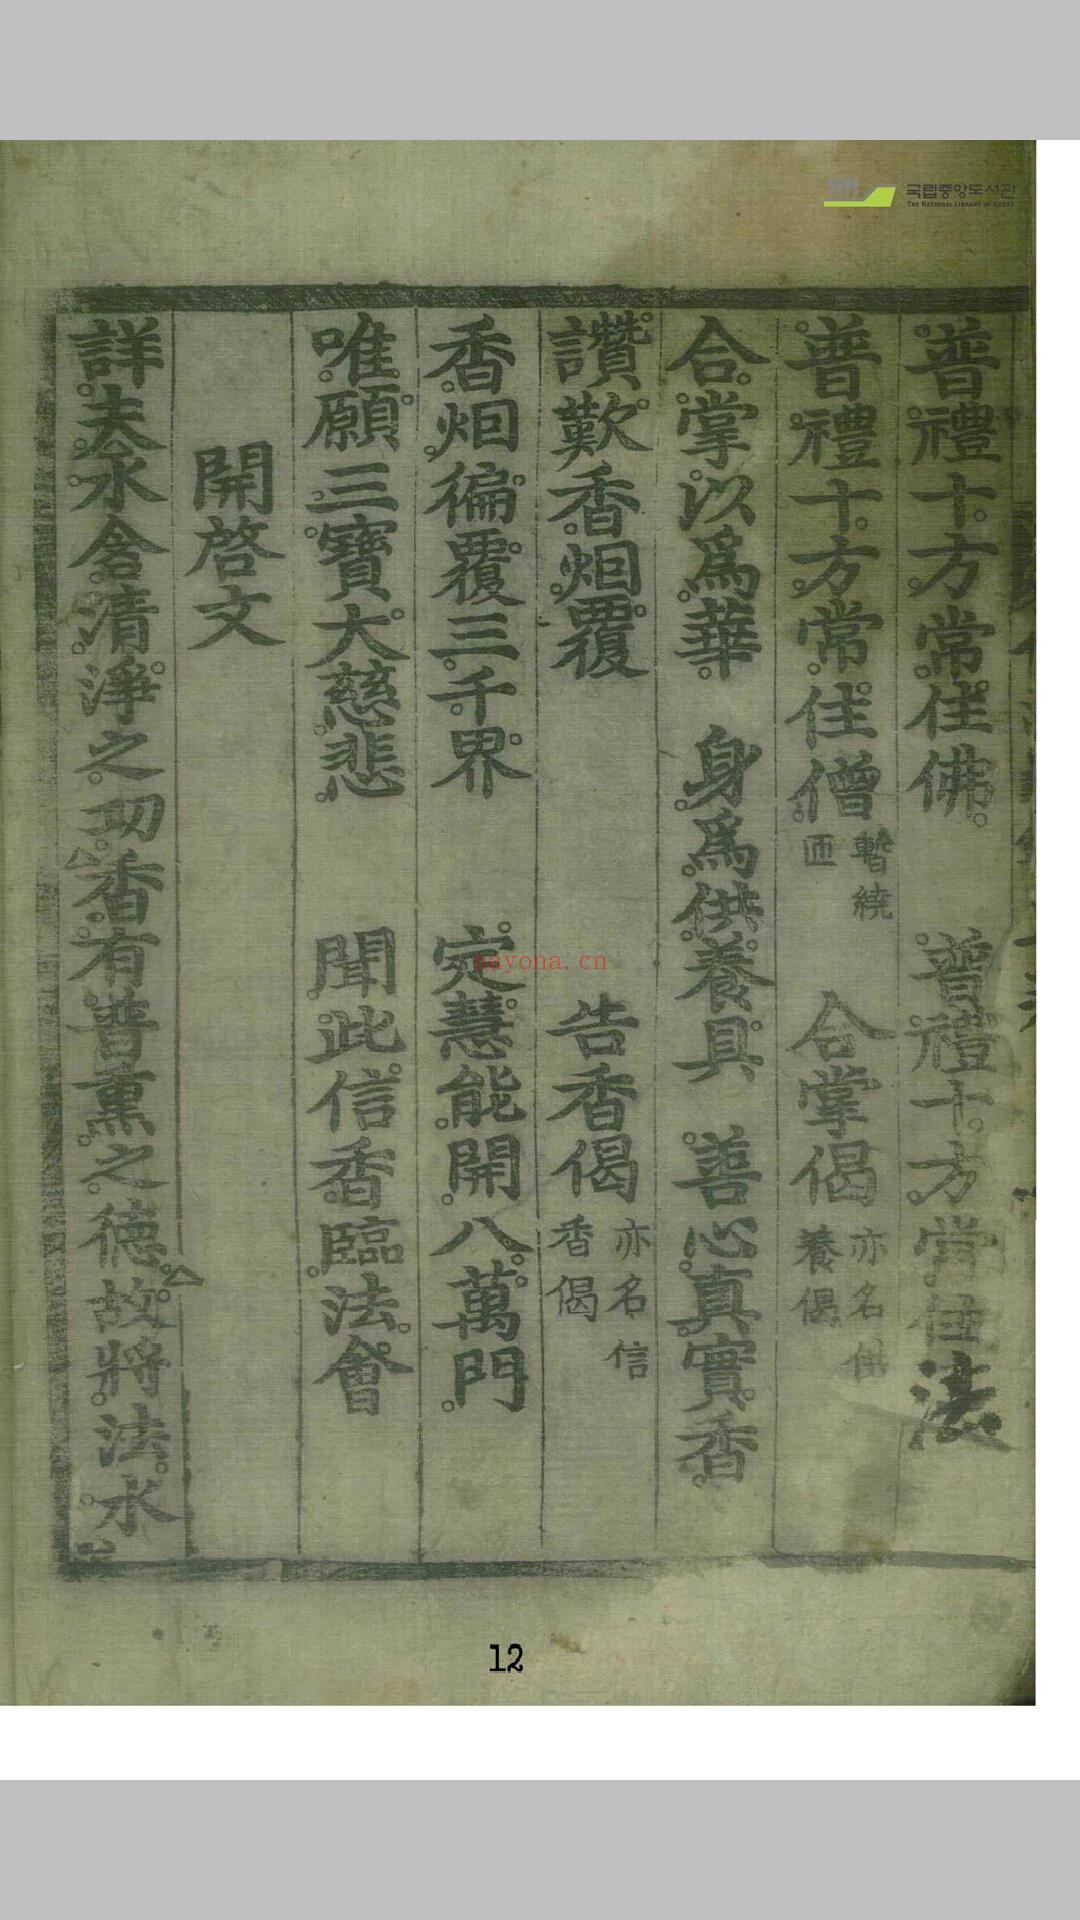 국립중앙도서관
THE NATIONAL LIBRARY OF KOREA
普禮十方常住佛 普禮十方常住法
普禮十方常住僧 暫繞匝 合掌偈 亦名供養偈
合掌以爲華 身爲供養具 善心真實香
讚歎香烟覆 告香偈 亦名信香偈
香烟徧覆三千界 定慧能開八萬門
唯願三寶大慈悲 聞此信香臨法會
開啓文
詳夫水含清淨之功香有普熏之德故將法水
nayona.cn
12